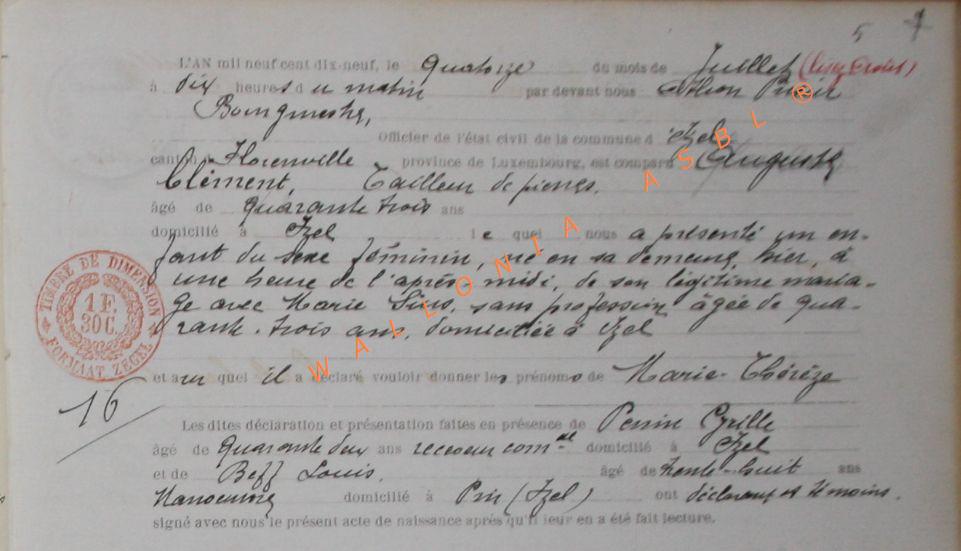 5 7
L'AN mil neuf cent dix-neuf, le Quatorze du mois de Juillet
à dix heures du matin par devant nous
Bourgmestre,
Officier de l'état civil de la commune d'Izel
canton Florenville province de Luxembourg, est comparu Auguste
Clément, Tailleur de pierres,
âgé de quarante trois ans
domicilié à Izel lequel nous a présenté un en-
fant du sexe féminin, né en sa demeure, hier, à
une heure de l'après-midi, de son légitime maria-
ge avec Marie sans profession, âgée de qua-
rante-trois ans, domiciliée à Izel
et auquel il a déclaré vouloir donner les prénoms de Marie-Thérèze
16
Les dites déclaration et présentation faites en présence de Perrin Cyrille
âgé de Quarante deux ans receveur comal domicilié à Izel
et de Beff Louis. âgé de trente-huit ans
Manoeuvre domicilié à Pin (Izel) ont déclarant et témoins.
signé avec nous le présent acte de naissance après qu'il leur en a été fait lecture.
TIMBRE DE DIMENSION
1 F.
30 C.
FORMAAT ZEGEL
WALLONIA ASBL ®